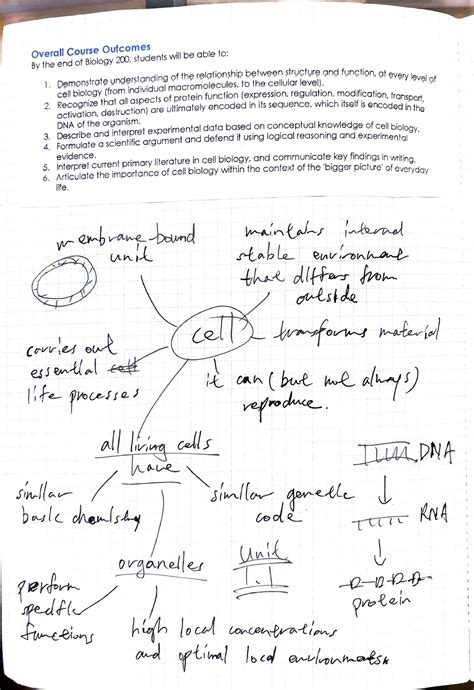 Overall Course Outcomes
By the end of Biology 200, students will be able to:
1. Demonstrate understanding of the relationship between structure and function, at every level of
cell biology (from individual macromolecules, to the cellular level).
2. Recognize that all aspects of protein function (expression, regulation, modification, transport,
activation, destruction) are ultimately encoded in its sequence, which itself is encoded in the
DNA of the organism.
3. Describe and interpret experimental data based on conceptual knowledge of cell biology.
4. Formulate a scientific argument and defend it using logical reasoning and experimental
evidence.
5. Interpret current primary literature in cell biology, and communicate key findings in writing.
6. Articulate the importance of cell biology within the context of the 'bigger picture' of everyday
life.
membrane-bound
unit
maintains internal
stable environment
that differs from
outside
cell
transforms material
carries out
essential cell
life processes
it can (but not always)
reproduce.
all living cells
have
similar
basic chemistry
similar genetic
code
organelles
perform
specific
functions
high local concentrations
and optimal local environments
Unit
1.1
DNA
RNA
protein